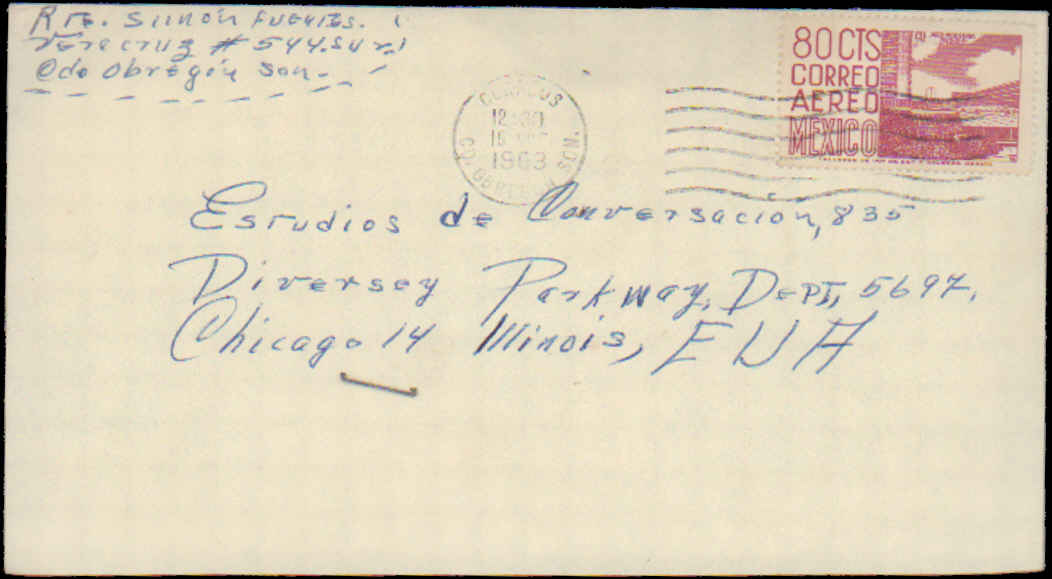 Rte. Simón Fuentes.
Veracruz # 544. Sur.
Cdo Obregón Son.
80 CTS
CORREO
AEREO
MEXICO
CORREOS
12
1963
CD. OBREGON SON.
Estudios de Conversación, 835
Diversey Parkway, Dept, 5697,
Chicago 14 Illinois, EUA